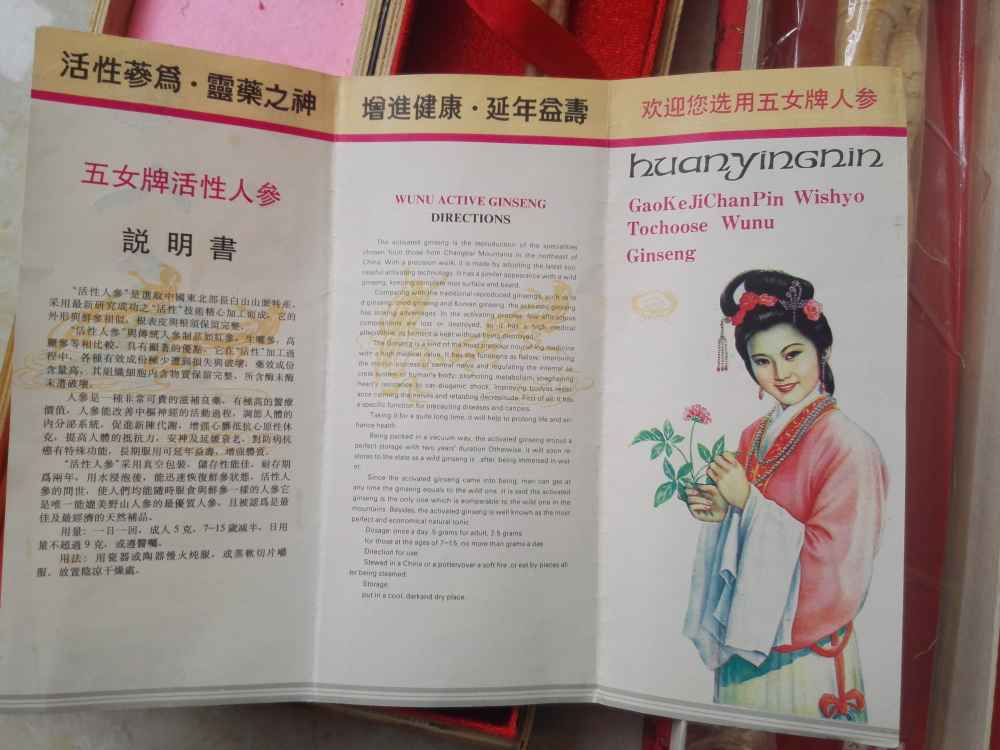 活性蔘爲·靈藥之神
五女牌活性人參
説明書
“活性人參”是選取中國東北部長白山山脈特産，
采用最新研究成功之“活性”技術精心加工而成，它的
外形與鮮參相似，根表皮與根須保留完整。
“活性人參”與傳統人參制品如紅參、生曬參、高
麗參等相比較，具有顯著的優點，它在“活性”加工過
程中，各種有效成份極少遭到損失與破壞，藥效成份
含量高，其組織細胞内含物質保留完整，所含酶未酶
未遭破壞。
人參是一種非常可貴的滋補良藥，有極高的醫療
價值，人參能改善中樞神經的活動過程，調節人體的
内分泌系統，促進新陳代謝，增强心臟抵抗心原性休
克，提高人體的抵抗力，安神及延緩衰老，對防病抗
癌有特殊功能，長期服用可延年益壽、增强體質。
“活性人參”采用真空包裝，儲存性能佳，耐存期
爲兩年，用水浸泡後，能迅速恢復鮮參狀態，活性人
參的問世，使人們均能隨時服食與鮮參一樣的人參它
是唯一能媲美野山人參的最優質人參，且被認爲是最
佳及最經濟的天然補品。
用量：一日一回，成人 5 克，7–15 歲減半，日用
量不超過 9 克，或遵醫囑。
用法：用瓷器或陶器慢火炖服，或蒸軟切片嚼
服，放置陰凉干燥處。
增進健康·延年益壽
WUNU ACTIVE GINSENG
DIRECTIONS
The activated ginseng is the reproduction of the specialities
chosen from those from Changbai Mountains in the northeast of
China. With a precision walk, it is made by adopting the latest suc-
cessful activating technology. It has a similar appearance with a wild
ginseng, keeping complete root surface and beard.
Comparing with the traditional reproduced ginsengs, such as re-
d ginseng, dried ginseng and Korean ginseng, the activated ginseng
has striking advantages. In the activating process, few efficacious
components are lost or destroyed, so it has a high medical
The Ginseng is a kind of the most precious nourishing medicine
with a high medical value. It has the functions as fellow: improving
the motion process of central nerve and regulating the internal se-
crete system of human's body; promoting metabolism; strengthening
heart's resistance to car-diogenic shock, improving bodyes resist-
ance calming the nerves and retarding decrepitude. First of all, it has
a specific function for precauting diseases and cancers.
Taking it for a quite long time, it will help to prolong life and en-
hance health.
Being packed in a vacuum way, the activated ginseng enjoys a
perfect storage with two years' duration Otherwise, it will soon re-
stores to the state as a wild ginseng is , after being immersed in wat-
er.
Since the activated ginseng came into being, man can get at
any time the ginseng equals to the wild one. It is said the activated
ginseng is the only one which is comparable to the wild one in the
mountains. Besides, the activated ginseng is well known as the most
perfect and economical natural tonic.
Dosage: once a day, 5 grams for adult, 2.5 grams
for those at the ages of 7–15, no more than grams a day
Direction for use:
Stewed in a China or a potteryover a soft fire ,or eat by pieces af-
ter being steamed.
Storage:
put in a cool, darkand dry place.
欢迎您选用五女牌人参
huanyingnin
GaoKeJiChanPin Wishyo
Tochoose Wunu
Ginseng